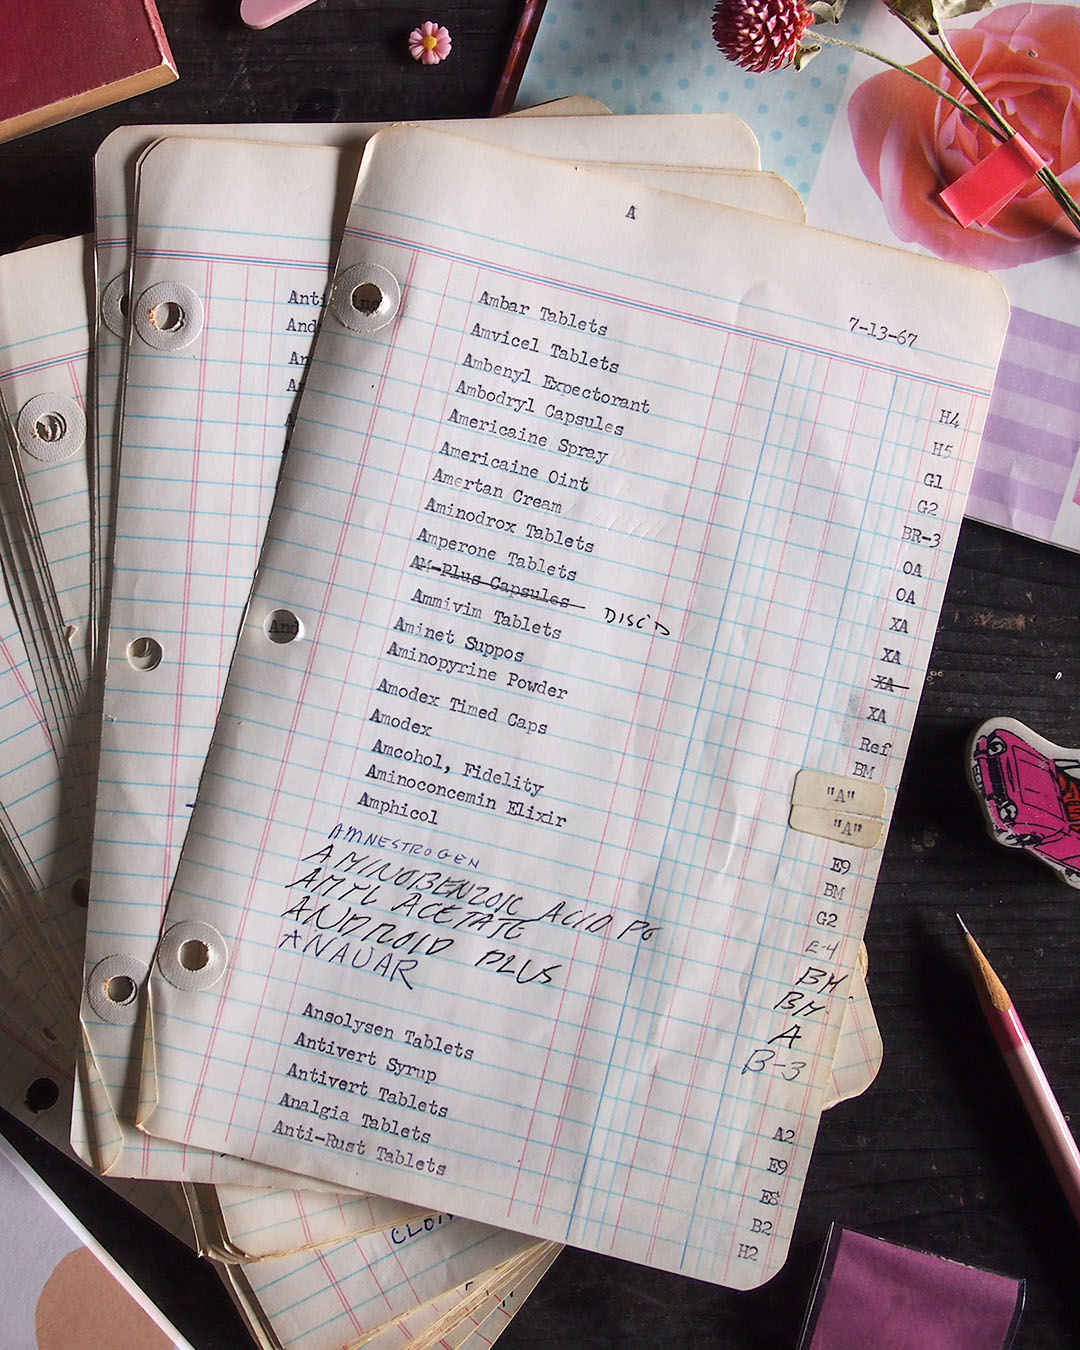 A
7-13-67
Ambar Tablets H4
Amvicel Tablets H5
Ambenyl Expectorant G1
Ambodryl Capsules G2
Americaine Spray BR-3
Americaine Oint OA
Amertan Cream OA
Aminodrox Tablets XA
Amperone Tablets XA
AM-Plus Capsules DISC'D XA
Ammivim Tablets XA
Aminet Suppos Ref
Aminopyrine Powder BM
Amodex Timed Caps "A"
Amodex "A"
Amcohol, Fidelity E9
Aminoconcemin Elixir BM
Amphicol G2
AMNESTROGEN E-4
AMINOBENZOIC ACID PG BM
AMYL ACETATE BM
ANDROID PLUS A
ANAVAR B-3
Ansolysen Tablets A2
Antivert Syrup E9
Antivert Tablets E8
Analgia Tablets B2
Anti-Rust Tablets H2
Anti
And
An
And